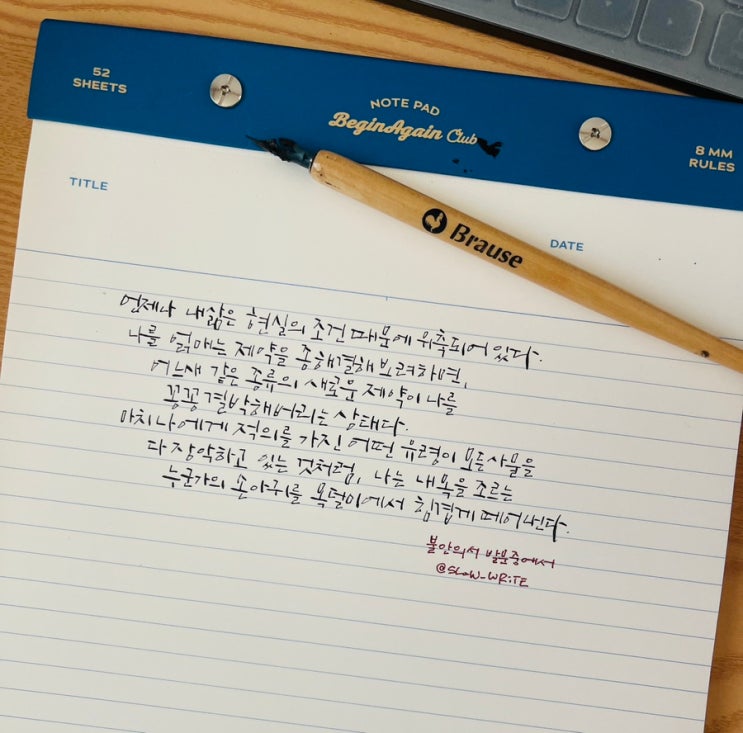 52
SHEETS
NOTE PAD
BeginAgain Club
8 MM
RULES
TITLE
Brause
DATE
언제나 내 삶은 현실의 조건 때문에 위축되어 있다.
나를 얽매는 제약을 좀 해결해 보려하면,
어느새 같은 종류의 새로운 제약이 나를
꽁꽁 결박해버리는 상태다.
마치 나에게 적의를 가진 어떤 유령이 모든 사물을
다 장악하고 있는 것처럼, 나는 내 목을 조르는
누군가의 손아귀를 목덜미에서 힘겹게 떼어낸다.
불안의서 발문중에서
@SLOW_WRiTE